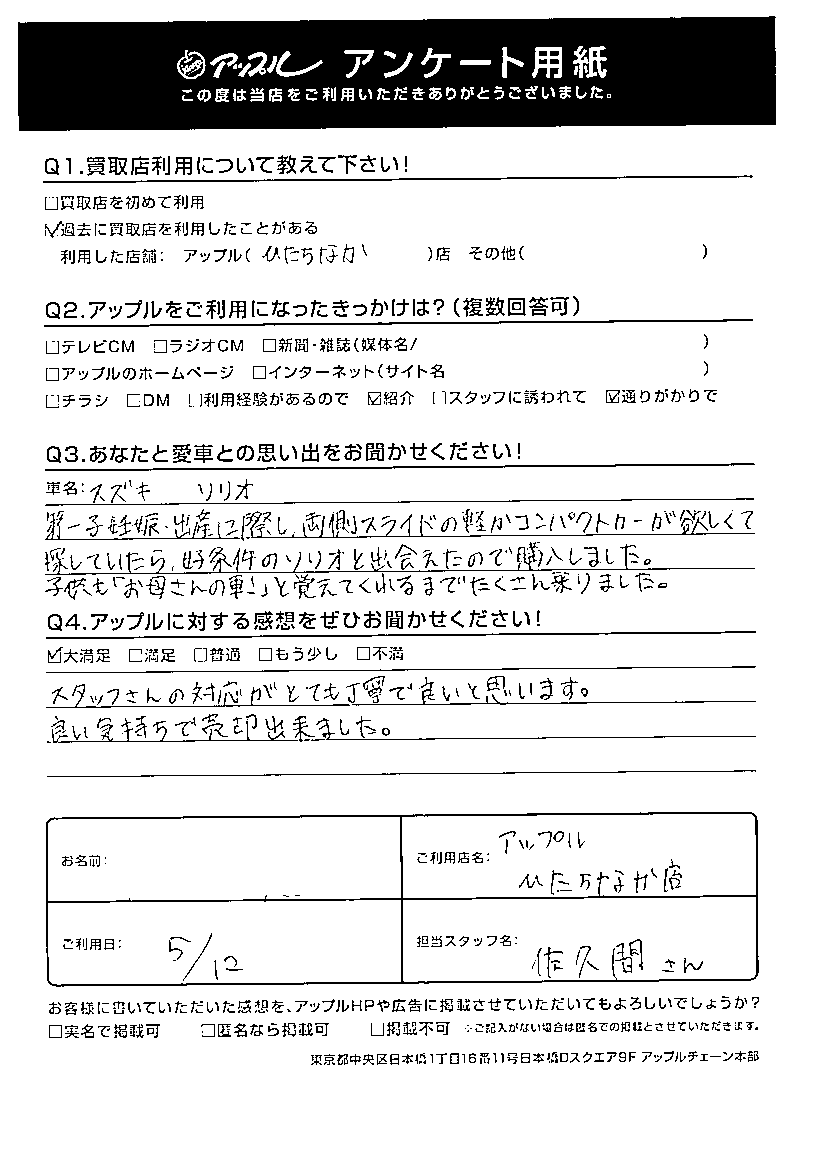 アップル アンケート用紙
この度は当店をご利用いただきありがとうございました。
Q1.買取店利用について教えて下さい!
□買取店を初めて利用
☑過去に買取店を利用したことがある
利用した店舗: アップル( ひたちなか )店 その他( )
Q2.アップルをご利用になったきっかけは?(複数回答可)
□テレビCM □ラジオCM □新聞・雑誌(媒体名/ )
□アップルのホームページ □インターネット(サイト名 )
□チラシ □DM □利用経験があるので ☑紹介 □スタッフに誘われて ☑通りがかりで
Q3.あなたと愛車との思い出をお聞かせください!
車名: スズキ ソリオ
第一子妊娠・出産に際し、両側スライドの軽かコンパクトカーが欲しくて
探していたら、好条件のソリオと出会えたので購入しました。
子供も「お母さんの車!」と覚えてくれるまでたくさん乗りました。
Q4.アップルに対する感想をぜひお聞かせください!
☑大満足 □満足 □普通 □もう少し □不満
スタッフさんの対応がとても丁寧で良いと思います。
良い気持ちで売却出来ました。
お名前:
ご利用店名: アップル
ひたちなか店
ご利用日: 5/12
担当スタッフ名: 佐久間さん
お客様に書いていただいた感想を、アップルHPや広告に掲載させていただいてもよろしいでしょうか?
□実名で掲載可 □匿名なら掲載可 □掲載不可 ※ご記入がない場合は匿名での掲載とさせていただきます。
東京都中央区日本橋1丁目16番11号日本橋Dスクエア9F アップルチェーン本部